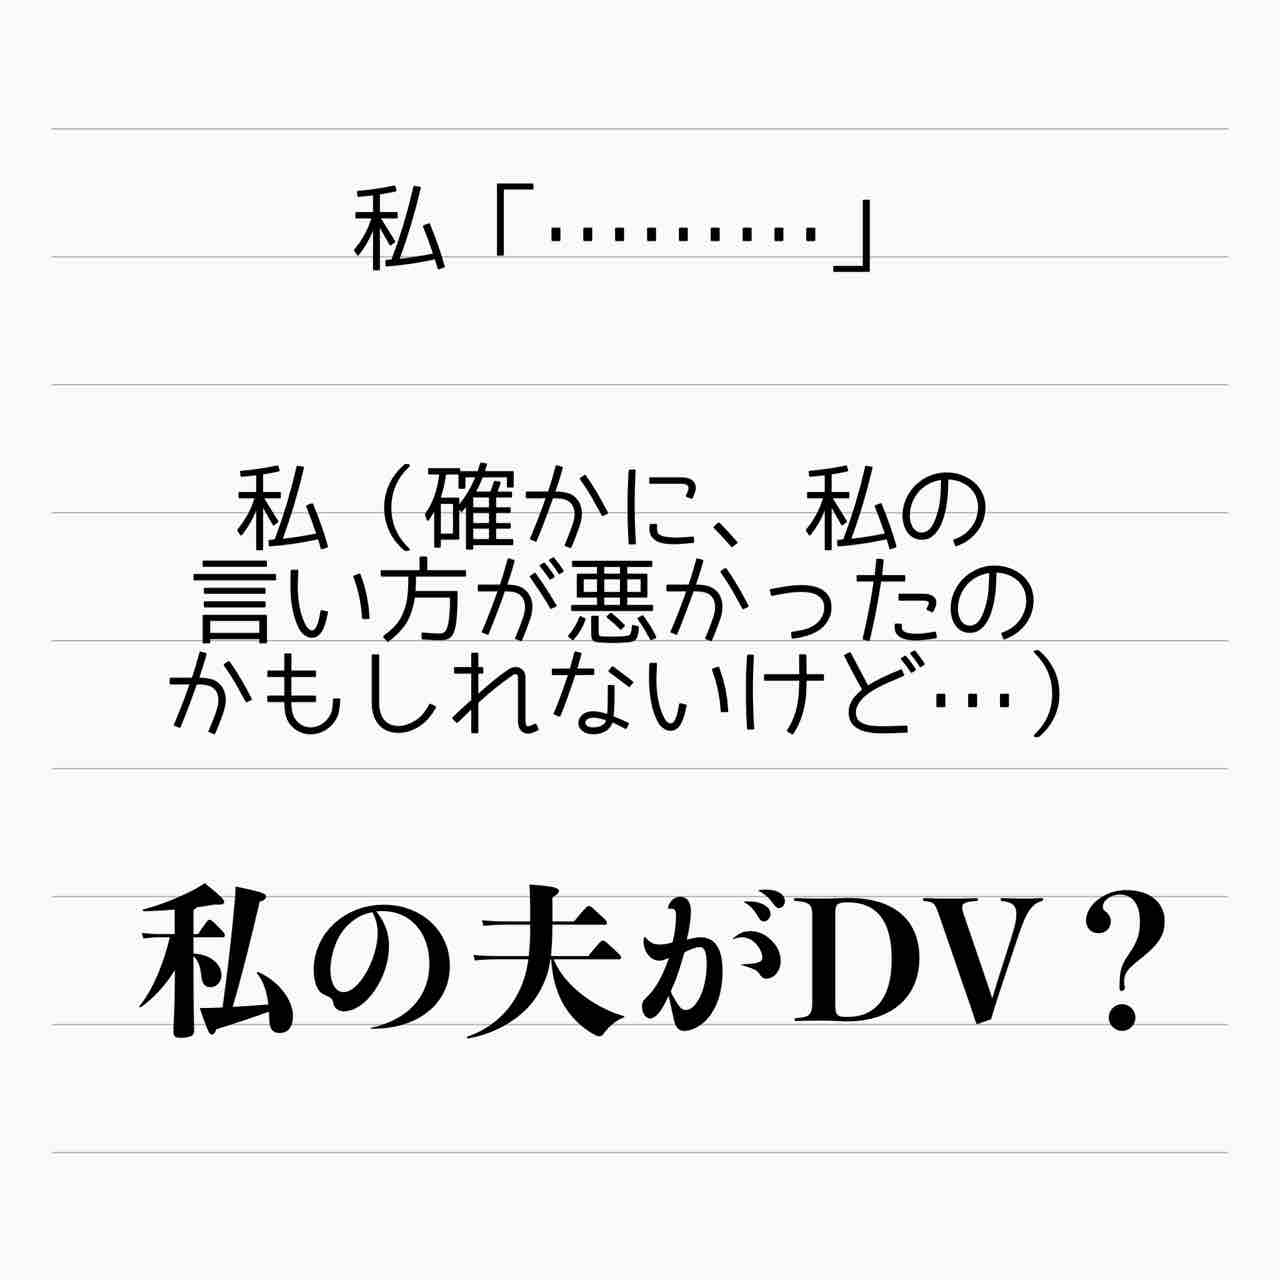 私「………」
私（確かに、私の
言い方が悪かったの
かもしれないけど…）
私の夫がDV？